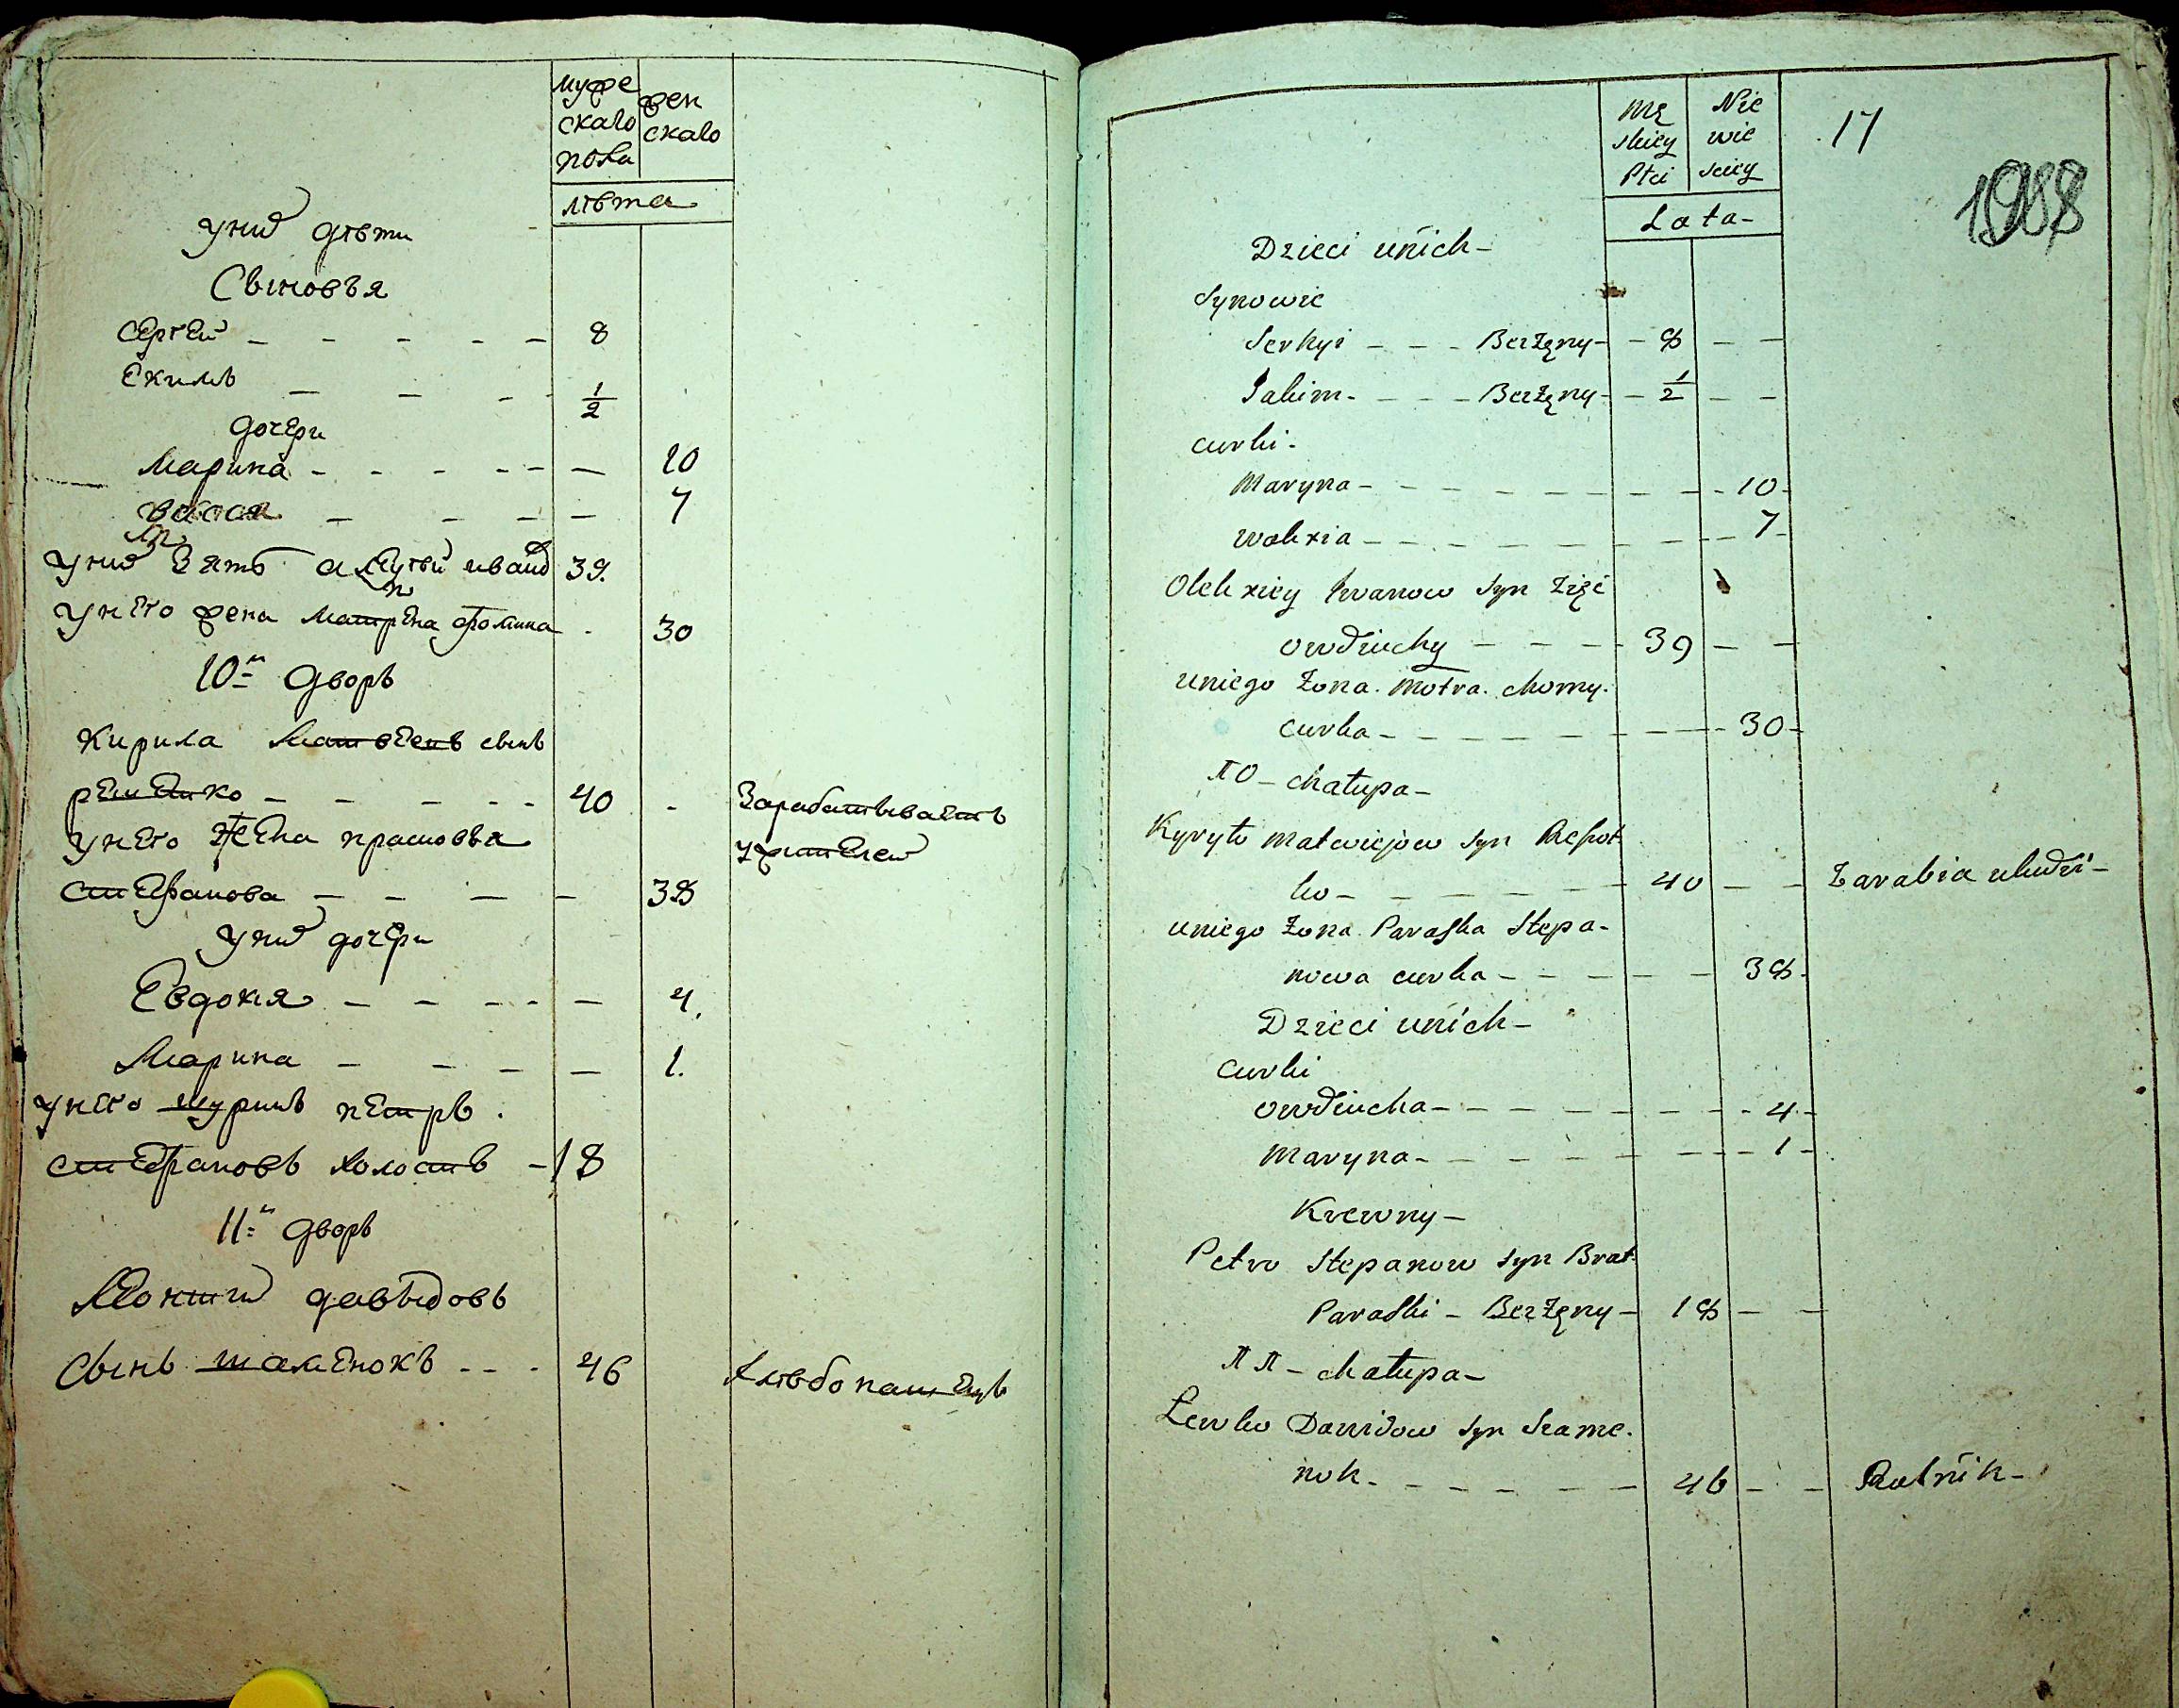 муже
скаго
пола
жен
скаго
лѣта
у них дѣти
Сыновья
Сергей - - - - - 8
Екимъ - - - - 1/2
дочери
Марина - - - - - - 10
Васса - - - - 7
у них зять Алексѣй Иванов 39.
у него жена Матрена Фомина - 30
10й дворъ
Кирила Матвѣевъ сынъ
решетко - - - - - 40 - Зарабатываетъ
у него жена прасковья
у жителей
стефанова - - - - 38
у них дочери
Евдокия - - - - - 4.
Марина - - - - 1.
у него шуринъ петръ.
стефановъ холостъ - 18
11й дворъ
Леонтий давыдовъ
сынъ шаменокъ - - - 46 хлѣбопашецъ
Mę
skiey
Płci
Nie
wie
sciey
17
Lata -
Dzieci unich -
Synowie
Serhyi - - - Bezżęny - - 8 - -
Jakim - - - - Bezżęny - - 1/2 - -
curki -
Maryna - - - - - - - - - 10 -
Wakxia - - - - - - - - - 7 -
Olekxiey Iwanow Syn Zięć
owdiuchy - - - - 39 - -
uniego Żona. Motra. Chomy.
curka - - - - - - - - - 30 -
10 - chałupa -
Kyryło Matwiejow Syn Reszot
ko - - - - - - 40 - - Zarabia uludzi -
uniego Żona Paraska Stepa-
nowa curka - - - - - 38 -
Dzieci unich -
Curki
owdiucha - - - - - - - - 4 -
Maryna - - - - - - - - 1 -
Krewny -
Petro Stepanow Syn Brat
Paraski - Bezżęny - 18 - -
11 - chałupa -
Lewko Dawidow Syn Szame-
nok - - - - - - 46 - - Rolnik -